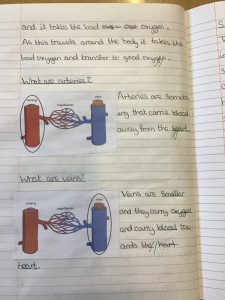 and it takes the bad oxygen.
As this travels around the body it takes the
bad oxygen and transfer to good oxygen.
What are arteries?
artery capillaries vein
Arteries are someth
ing that carrie blood
away from the heart.
What are veins?
artery capillaries vein
Veins are smaller
and they carry oxygen
and carry blood tow
ards the heart
heart.